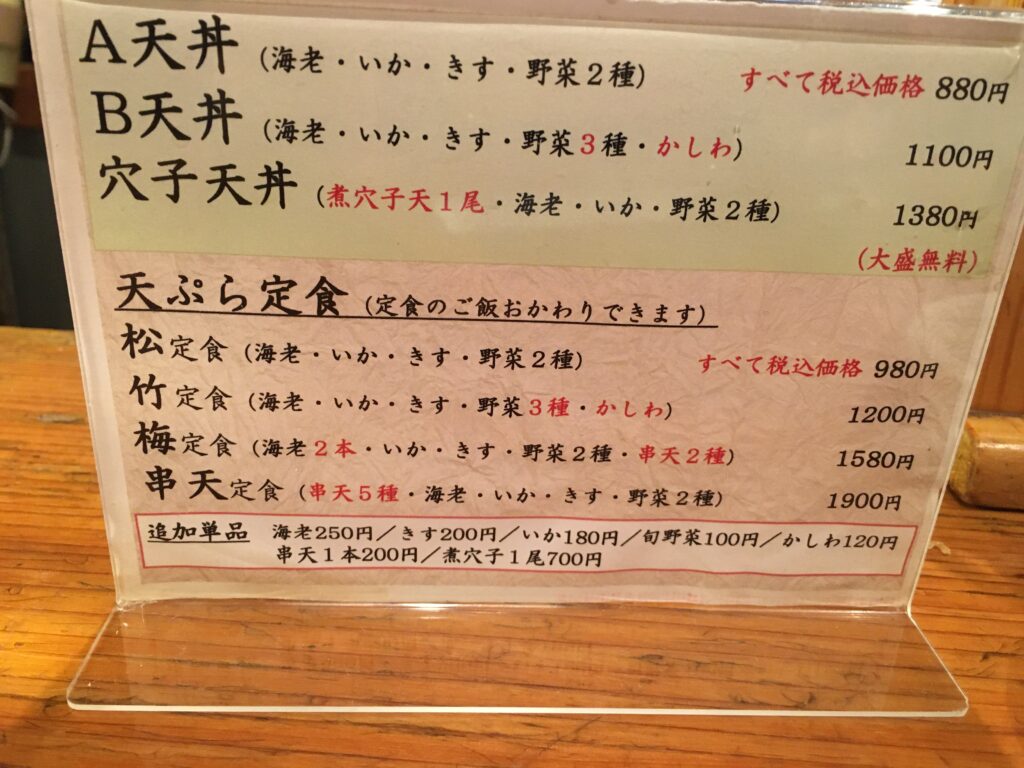 A天丼 (海老・いか・きす・野菜2種) すべて税込価格 880円
B天丼 (海老・いか・きす・野菜3種・かしわ) 1100円
穴子天丼 (煮穴子天1尾・海老・いか・野菜2種) 1380円
(大盛無料)
天ぷら定食 (定食のご飯おかわりできます)
松定食 (海老・いか・きす・野菜2種) すべて税込価格 980円
竹定食 (海老・いか・きす・野菜3種・かしわ) 1200円
梅定食 (海老2本・いか・きす・野菜2種・串天2種) 1580円
串天定食 (串天5種・海老・いか・きす・野菜2種) 1900円
追加単品 海老250円/きす200円/いか180円/旬野菜100円/かしわ120円
串天1本200円/煮穴子1尾700円